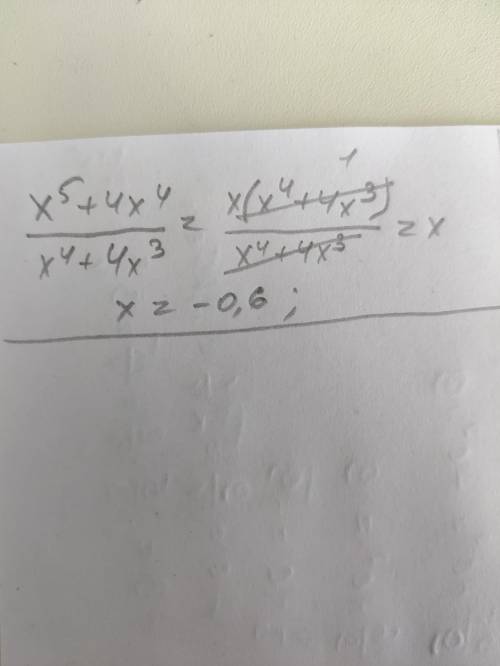 x⁵+4x⁴ / x⁴+4x³ = x(x⁴+4x³) / x⁴+4x³ = x
1
x = -0,6 ;